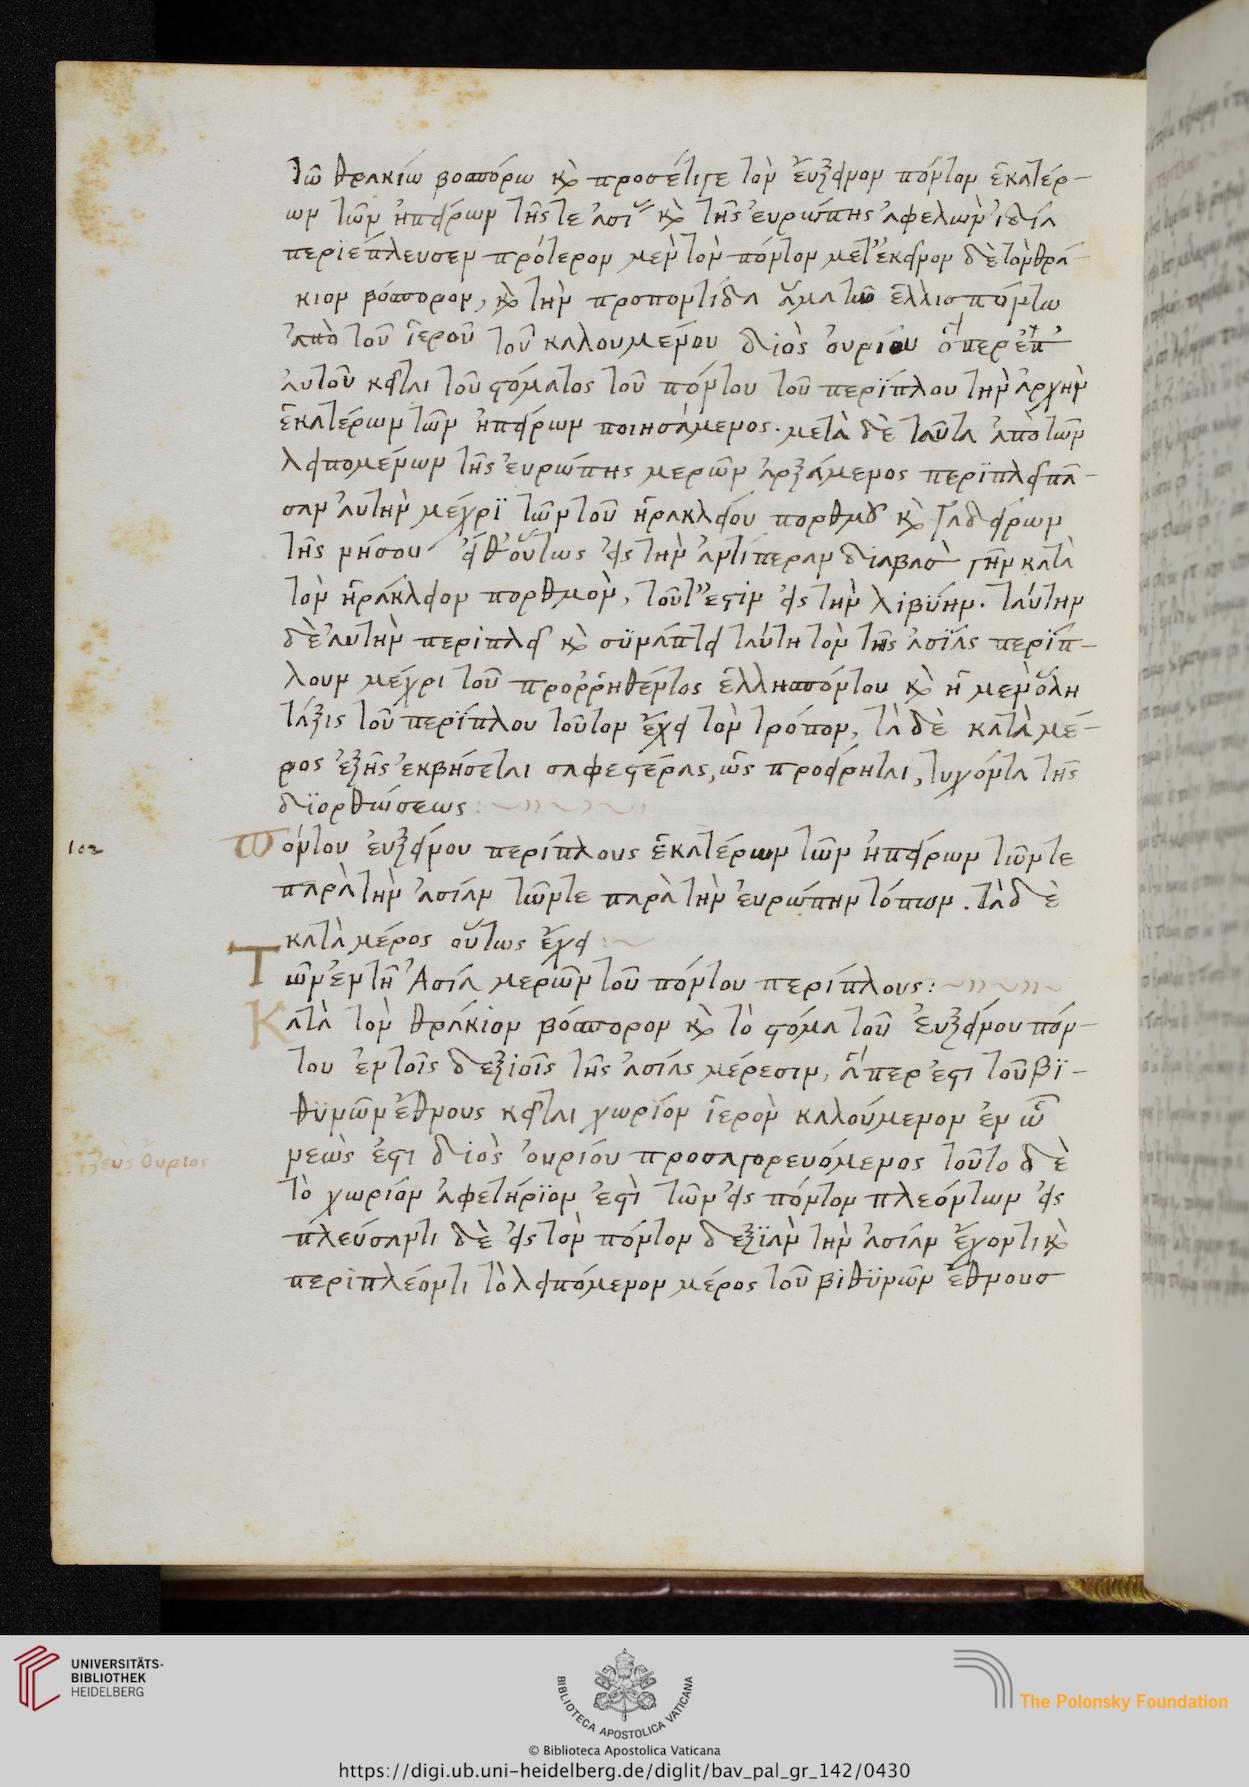 τῶ θρακίω βοσπόρω κ̀ προσέτιγε τὸν εὔξεινον πόντον ἑκατέρ-
ων τῶν ἠπείρων τῆς τε ἀσίας κ̀ τῆς εὐρώπης ἀφελὼν ἰδία
περιέπλευσεν πρότερον μὲν τὸν πόντον μετ' ἐκεῖνον δὲ τὸν θρά-
κιον βόσπορον, κ̀ τὴν προποντίδα ἅμα τῶ ἑλλισπόντω
ἀπὸ τοῦ ἱεροῦ τοῦ καλουμένου διὸς οὐρίου ὅπερ ἐπ'
αὐτοῦ κεῖται τοῦ στόματος τοῦ πόντου τοῦ περίπλου τὴν ἀρχὴν
ἑκατέρων τῶν ἠπείρων ποιησάμενος. μετὰ δὲ ταῦτα ἀπὸ τῶν
λειπομένων τῆς εὐρώπης μερῶν ἀρξάμενος περιπλεῖ πᾶ-
σαν αὐτὴν μέχρι τῶν τοῦ ἡρακλείου πορθμοῦ κ̀ γαδείρων
τῆς νήσου εἶθ' οὕτως εἰς τὴν ἀντίπεραν διαβὰς γῆν κατὰ
τὸν ἡράκλειον πορθμὸν, τοῦτ' ἐστὶν εἰς τὴν λιβύην. ταύτην
δὲ αὐτὴν περιπλεῖ κ̀ συνάπτει ταύτη τὸν τῆς ἀσίας περίπ-
λουν μέχρι τοῦ προῤῥηθέντος ἑλλησπόντου κ̀ ἡ μὲν ὅλη
τάξις τοῦ περίπλου τοῦτον ἔχει τὸν τρόπον, τὰ δὲ κατὰ μέ-
ρος ἑξῆς ἐκβήσεται σαφεστέρας, ὡς προείρηται, τυχόντα τῆς
διορθώσεως:
102 πόντου εὐξείνου περίπλους ἑκατέρων τῶν ἠπείρων τῶν τε
παρὰ τὴν ἀσίαν τῶν τε παρὰ τὴν εὐρώπην τόπων. τὰ δὲ
κατὰ μέρος οὕτως ἔχει:
Τῶν ἐν τῆ Ἀσία μερῶν τοῦ πόντου περίπλους:
Κατὰ τὸν θράκιον βόσπορον κ̀ τὸ στόμα τοῦ εὐξείνου πόν-
του ἐν τοῖς δεξιοῖς τῆς ἀσίας μέρεσιν, ἅπερ ἐστι τοῦ βι-
θυνῶν ἔθνους κεῖται χωρίον ἱερὸν καλούμενον ἐν ὧ
νεὼς ἐστι διὸς οὐρίου προσαγορευόμενος τοῦτο δὲ
ζευς Ούριος
τὸ χωρίον ἀφετήριον ἐστὶ τῶν εἰς πόντον πλεόντων εἰς
πλεύσαντι δὲ εἰς τὸν πόντον δεξιὰν τὴν ἀσίαν ἔχοντι κ̀
περιπλέοντι τὸ λειπόμενον μέρος τοῦ βιθυνῶν ἔθνους
UNIVERSITÄTS-
BIBLIOTHEK
HEIDELBERG
BIBLIOTECA APOSTOLICA VATICANA
The Polonsky Foundation
© Biblioteca Apostolica Vaticana
https://digi.ub.uni-heidelberg.de/diglit/bav_pal_gr_142/0430